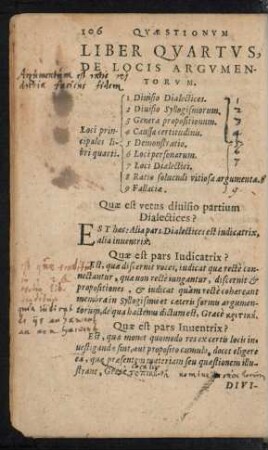 106 QVÆSTIONVM
LIBER QVARTVS,
DE LOCIS ARGVMEN-
TORVM.
Argumentum est ratio rei
dubiæ faciens fidem
Loci prin-
cipales li-
bri quarti.
1 Diuisio Dialectices. 1
2 Diuisio Syllogismorum. 2
3 Genera propositionum. 3
4 Caussa certitudinis. 4
5 Demonstratio. 5
6 Loci personarum. 6
7 Loci Dialectici. 7
8 Ratio soluendi vitiosa argumenta. 8
9 Fallaciæ. 9
Quæ est vetus diuisio partium
Dialectices?
EST hæc: Alia pars Dialectices est iudicatrix,
alia inuentrix.
Quæ est pars Iudicatrix?
Est, quæ discernit voces, iudicat quæ rectè con-
nectantur, quæ non rectè iungantur, discernit &
propositiones, & iudicat quàm rectè cohereant
membra in syllogismo et cæteris formis argumen-
torum, de qua hactenus dictum est. Græcè κριτική.
Quæ est pars Inuentrix?
Est, quæ monet quomodo res ex certis locis in-
uestigandæ sint, aut proposito cumulo, docet eligere
ea, quæ præsentem materiam seu quæstionem illu-
strant, Græcè
DIVI-